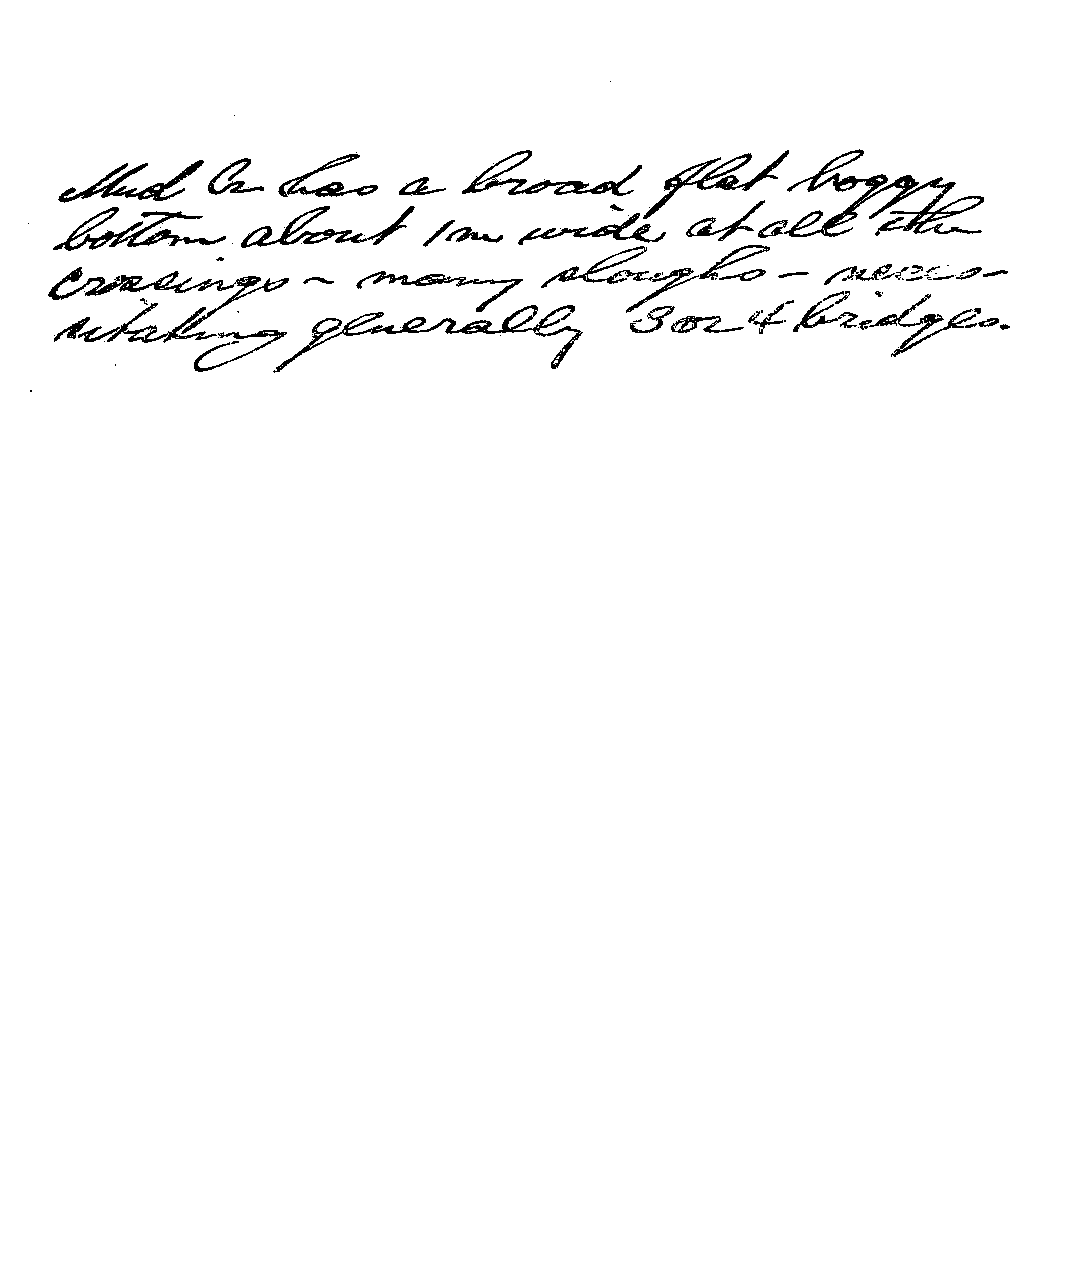 Mud Cr has a broad flat boggy
bottom about 1 m wide at all the
crossings – many sloughs – neces-
sitating generally 3 or 4 bridges.